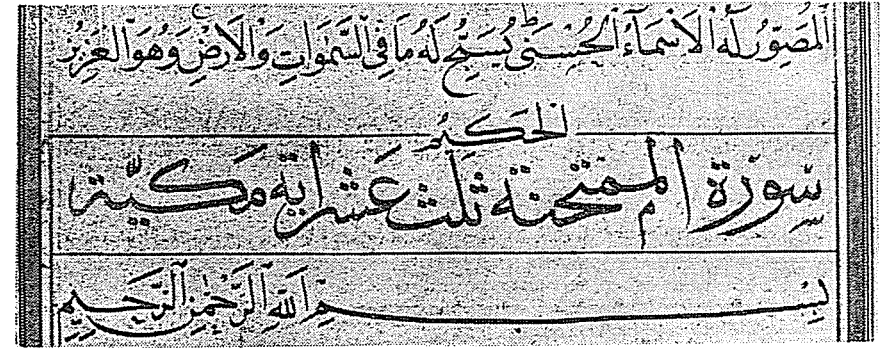 الْمُصَوِّرُ لَهُ الْأَسْمَاءُ الْحُسْنَىٰ يُسَبِّحُ لَهُ مَا فِي السَّمَٰوَاتِ وَالْأَرْضِ وَهُوَ الْعَزِيزُ
الْحَكِيمُ
سورة الممتحنة ثلث عشر اية مكية
بِسْمِ اللَّهِ الرَّحْمَٰنِ الرَّحِيمِ